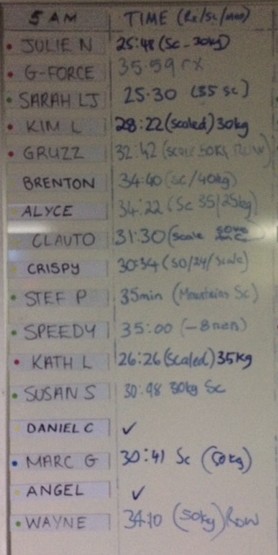 5 AM TIME (Rx/Sc/mod)
JULIE N 25:48 (Sc - 30kg)
G-FORCE 35:59 rx
SARAH LJ 25:30 (35 sc)
KIM L 28:22 (scaled) 30kg
GRUZZ 32:42 (scale 50kg Row)
BRENTON 34:40 (sc/40kg)
ALYCE 34:22 (Sc 35/25kg)
CLAUTO 31:30 (scale
CRISPY 30:34 (50/24/scale)
STEF P 35min (Mountain Sc)
SPEEDY 35:00 (-8
KATH L 26:26 (scaled) 35kg
SUSAN S 30:48 30kg Sc
DANIEL C ✓
MARC G 30:41 Sc (50kg)
ANGEL ✓
WAYNE 34:10 (50kg) Row